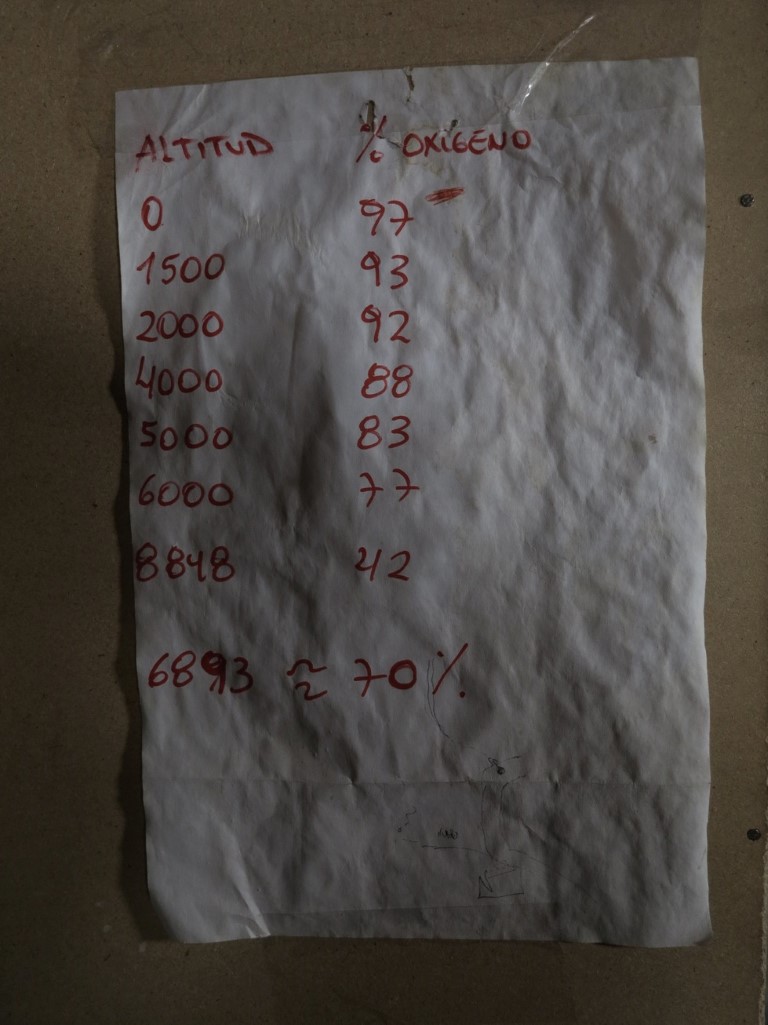 ALTITUD % OXIGENO
0 97
1500 93
2000 92
4000 88
5000 83
6000 77
8848 42
6893 ≈ 70%